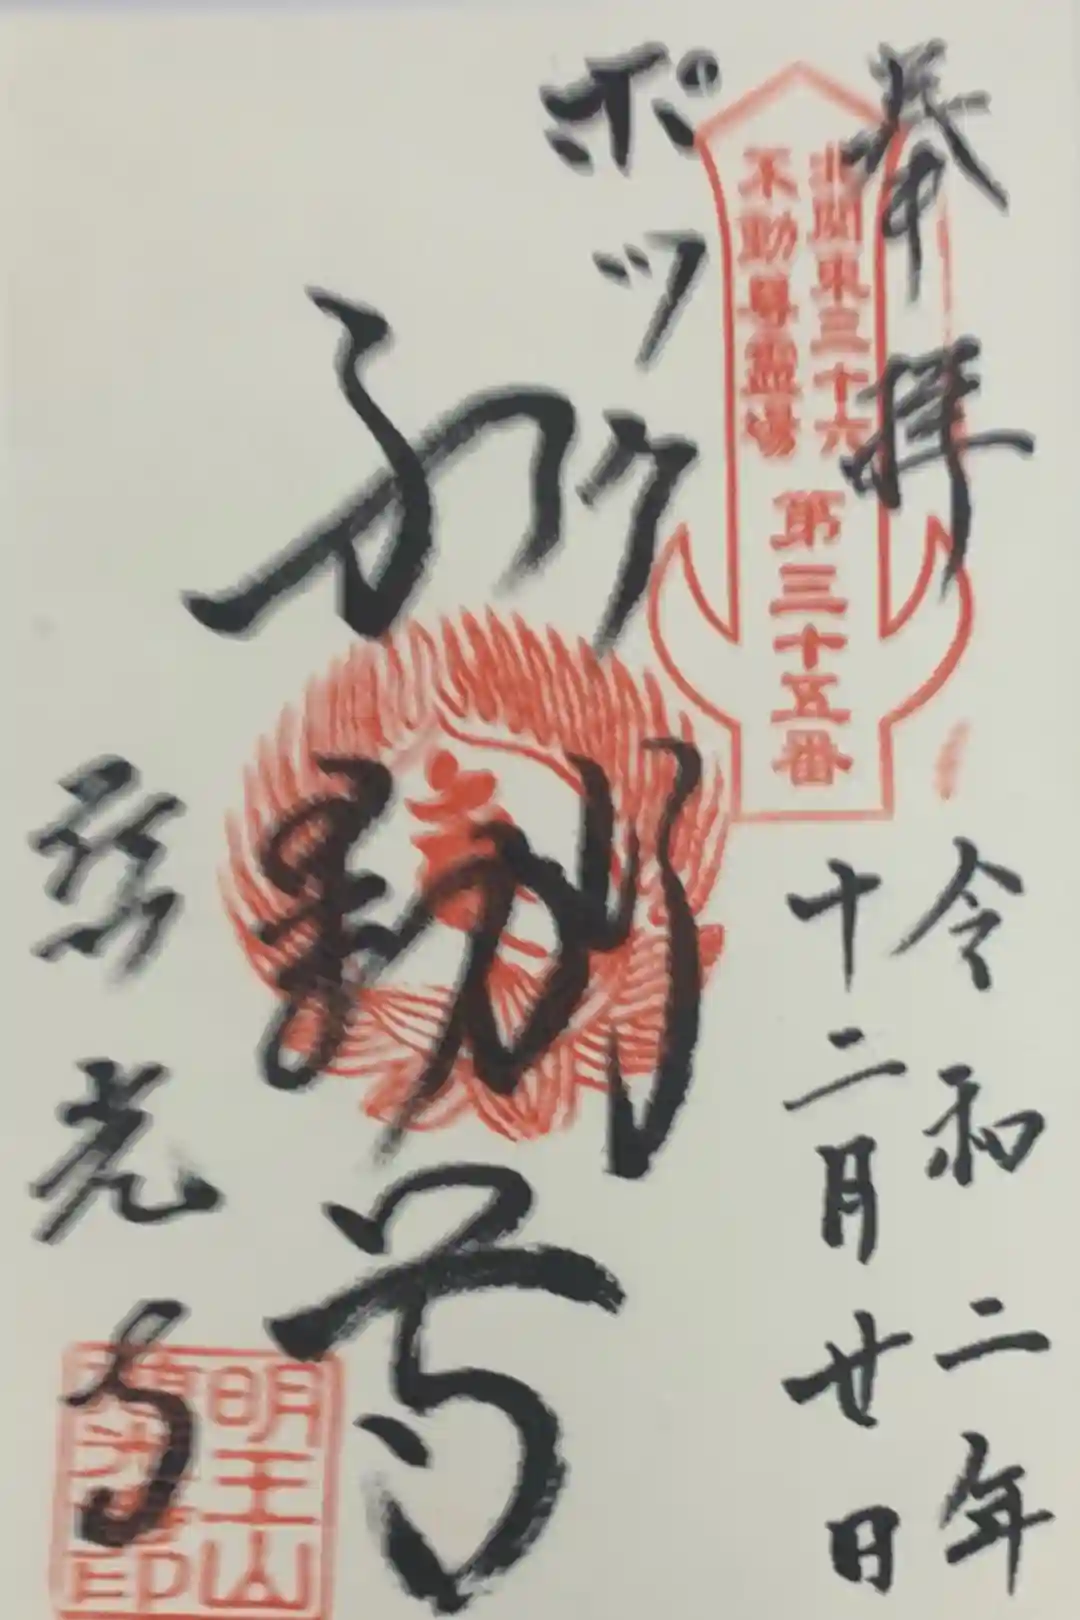 奉拝
北関東三十六
不動尊霊場
第三十五番
令和二年
十二月廿日
ポックリ
不動尊
慈光寺
明王山
慈光寺印